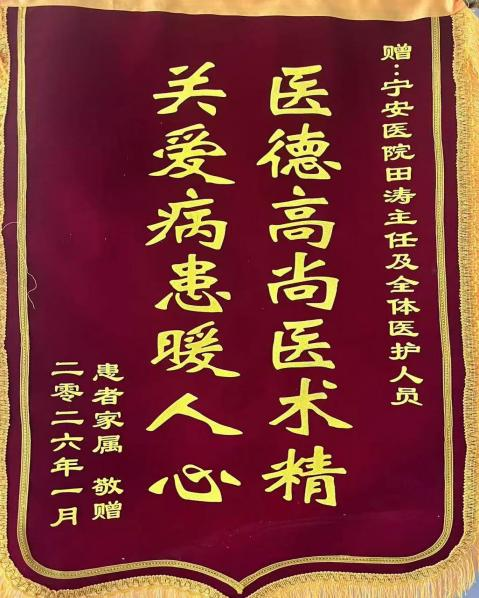 赠:宁安医院田涛主任及全体医护人员
医德高尚医术精
关爱病患暖人心
患者家属 敬赠
二零二六年一月